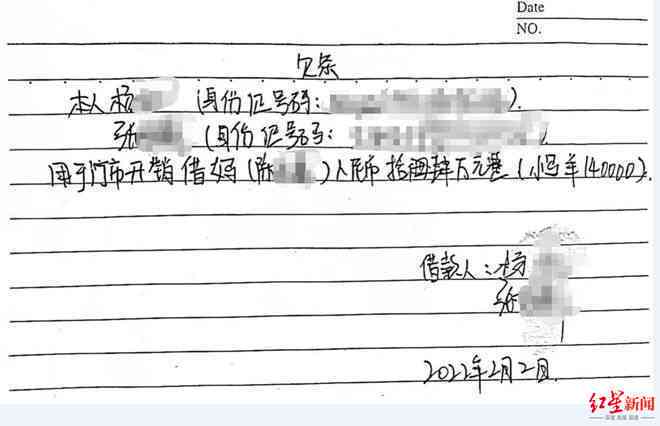 Date
NO.
欠条
本人杨 (身份证号码: ).
张 (身份证号码: ).
用于门市开销借妈(陈 )人民币拾肆万元整(小写¥140000).
借款人:杨
张
2022年2月2日.
红星新闻